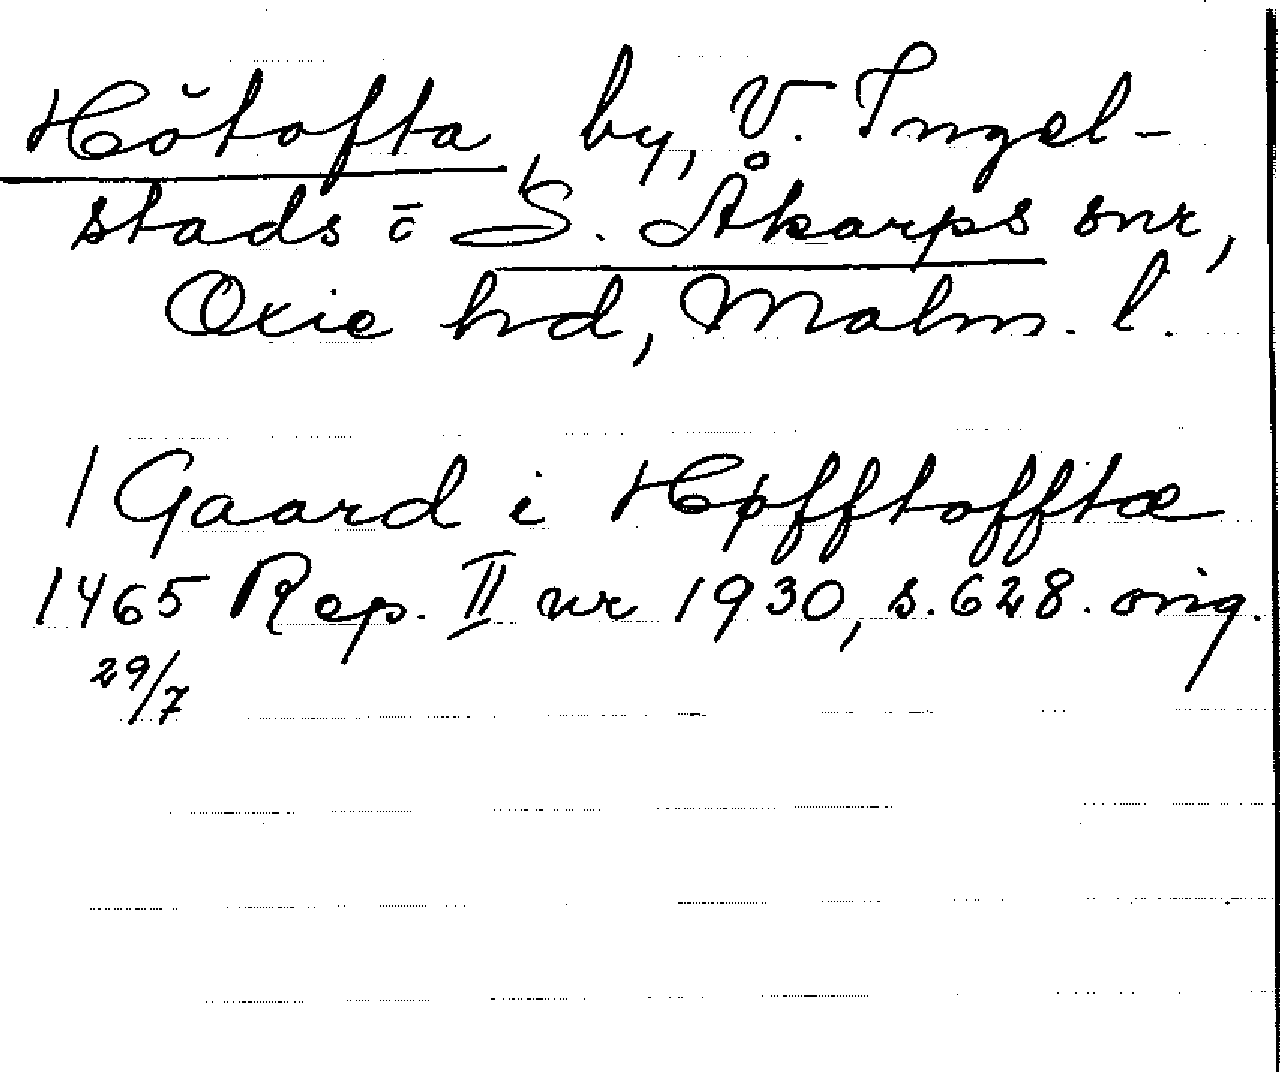 Hötofta, by, V. Ingel-
stads o S. Åkarps snr,
Oxie hrd, Malm. l.
1 Gaard i Høfftofftæ
1465 Rep. II nr 1930, s. 628. orig.
29/7